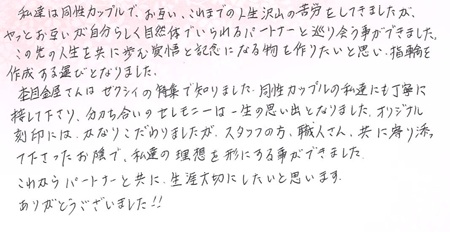 私達は同性カップルで、お互い、これまでの人生沢山の苦労をしてきましたが、
やっとお互いが自分らしく自然体でいられるパートナーと巡り会う事ができました。
この先の人生を共に歩む覚悟と記念になる物を作りたいと思い、指輪を
作成する運びとなりました。
杢目金屋さんはゼクシィの特集で知りました。同性カップルの私達にも丁寧に
接して下さり、分かち合いのセレモニーは一生の思い出となりました。オリジナル
刻印には、かなりこだわりましたが、スタッフの方、職人さん、共に寄り添っ
て下さったお陰で、私達の理想を形にする事ができました。
これからパートナーと共に、生涯大切にしたいと思います。
ありがとうございました!!